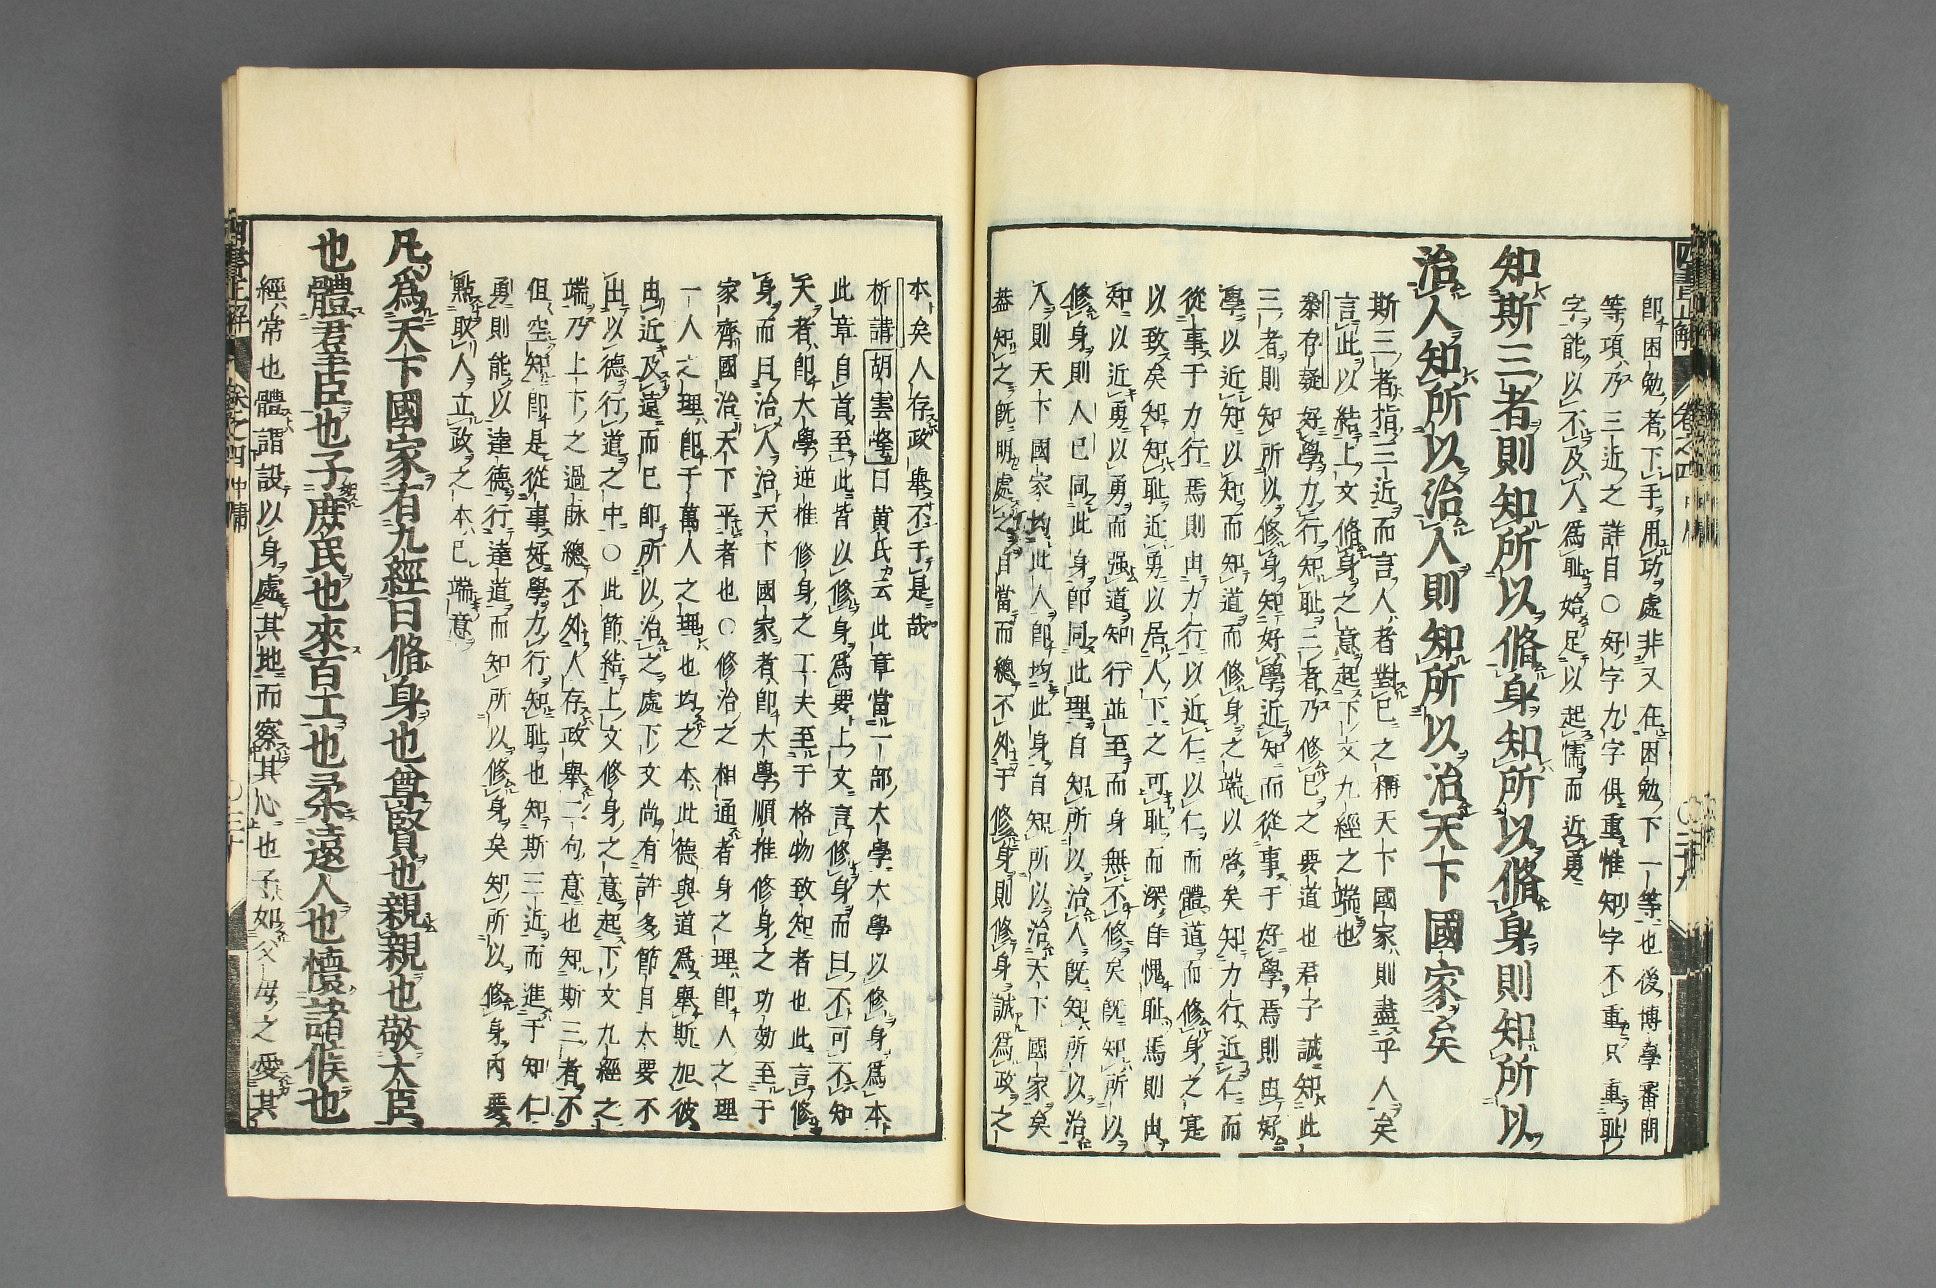 即困勉者下手用功處非又在困勉下一等也後博學審問
等項乃三近之詳目○好字九字俱重惟知字不重只重恥
字能以不及人爲恥始足以起懦而近勇
知斯三者則知所以脩身知所以脩身則知所以
治人知所以治人則知所以治天下國家矣
斯三者指三近而言人者對已之稱天下國家則盡乎人矣
言此以結上文脩身之意起下文九經之端也
叅存疑 好學力行知恥三者乃修已之要道也君子誠知此
三者則知所以修身知好學近知而從事于好學焉則由好
學以近知以知而知道而修身之端以啓矣知力行近仁而
從事于力行焉則由力行以近仁以仁而體道而修身之寔
以致矣知知恥近勇以居人下之可恥而深自愧恥焉則由
知以近勇以勇而强道知行並至而身無不修矣既知所以
修身則人已同此身卽同此理自知所以治人既知所以治
人則天下國家均此人卽均此身自知所以治天下國家矣
葢知之既明處之自當而總不外于修身則修身誠爲政之
本矣人存政舉不于是哉
析講 胡雲峰曰黄氏云此章當一部大學大學以修身爲本
此章自首至此皆以修身爲要上文言修身而曰不可不知
天者卽大學逆推修身之工夫至于格物致知者也此言修
身而曰治人治天下國家者卽大學順推修身之功効至于
家齊國治天下平者也○修治之相通者身之理卽人之理
一人之理卽千萬人之理也均之本此德與道爲舉斯加彼
由近及遠而已卽所以治之處下文尚有許多節目太要不
出以德行道之中○此節結上文修身之意起下文九經之
端乃上下之過脉總不外人存政舉二句意也知斯三者不
但空知卽是從事好學力行知恥也知斯三近而進于知仁
勇則能以達德行達道而知所以修身矣知所以修身内要
㸃取人立政之本已端意
凡爲天下國家有九經曰脩身也尊賢也親親也敬大臣
也體羣臣也子庶民也來百工也柔遠人也懷諸侯也
經常也體謂設以身處其地而察其心也子如父母之愛其
四書正解 卷之四 中庸
三十